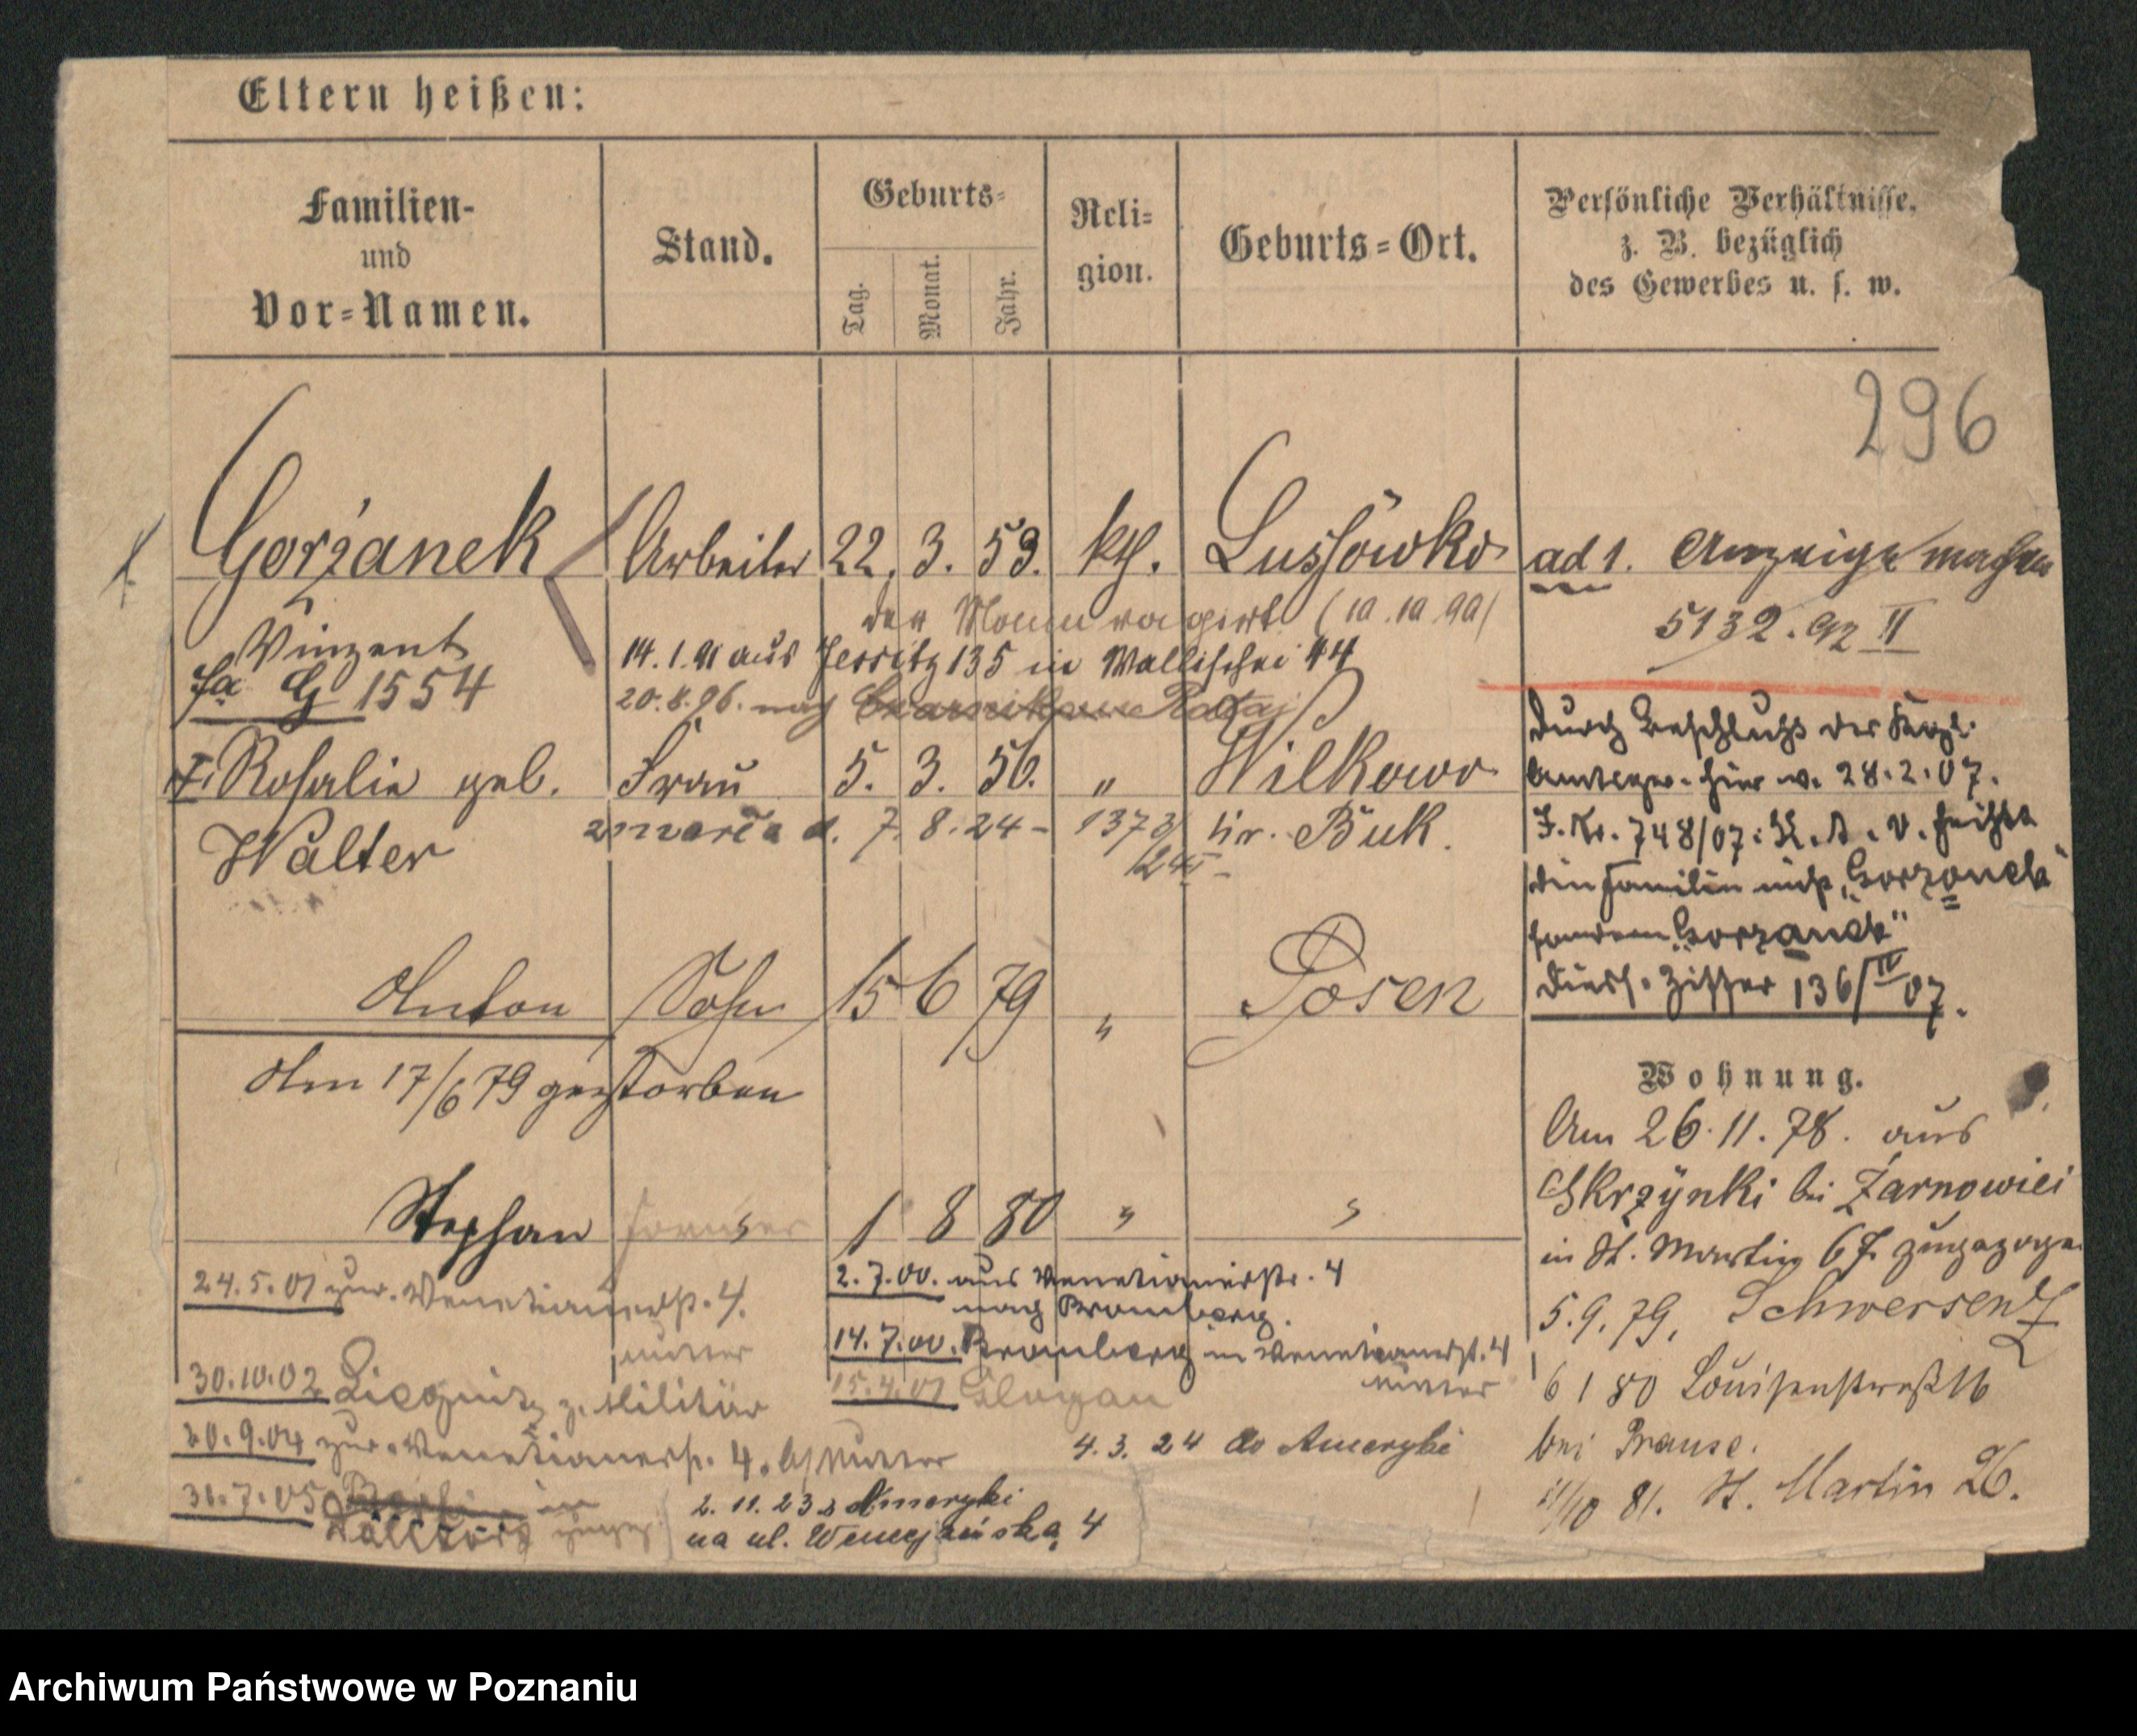 Eltern heißen:
Familien-
und
Vor-Namen.
Stand.
Geburts-
Tag.
Monat.
Jahr.
Reli-
gion.
Geburts-Ort.
Persönliche Verhältnisse,
z. B. bezüglich
des Gewerbes u. s. w.
296
Gorzanek Arbeiter 22. 3. 53. kth. Lussowko
Vinzent
der Mann vagirt
14.1.91 aus Jersitz 135 in Wallischei 44
G 1554
20.8.96. nach
Rosalie geb. Frau 5. 3. 56. " Wilkowo
Walter
zmarła d. 7. 8. 24 - 1373/24 Kr. Buk.
Anton Sohn 15 6 79 " Posen
Am 17/6 79 gestorben
Stephan 1 8 80 " "
24.5.01 zur. Venetianerstr. 4.
Mutter
30.10.02 Liegnitz z. Militär
20.9.04 zur. Venetianerstr. 4. b/ Mutter
31.7.05
2.7.00. aus Venetianerstr. 4
nach Bromberg.
14.7.00. Bromberg in Venetianerstr. 4
Mutter
15.4.01 Glogau
4. 3. 24 do Ameryki
2. 11. 23 z Ameryki
na ul. Wenecjańska 4
ad 1. Anzeige machen
5132. 92 II
Durch Beschluß des Kgl.
Amtsger. hier v. 28.2.07.
J. Nr. 748/07. heißt
die Familie nicht „Gorzonek"
sondern „Gorzanek"
Diess. Ziffer 136/IV 07.
Wohnung.
Am 26.11.78. aus
Skrzynki bei Zarnowiec
in St. Martin 67. zugezogen
5.9.79, Schwersenz
6 1 80 Louisenstraß 16
bei Krause.
11/10 81. St. Martin 26.
Archiwum Państwowe w Poznaniu